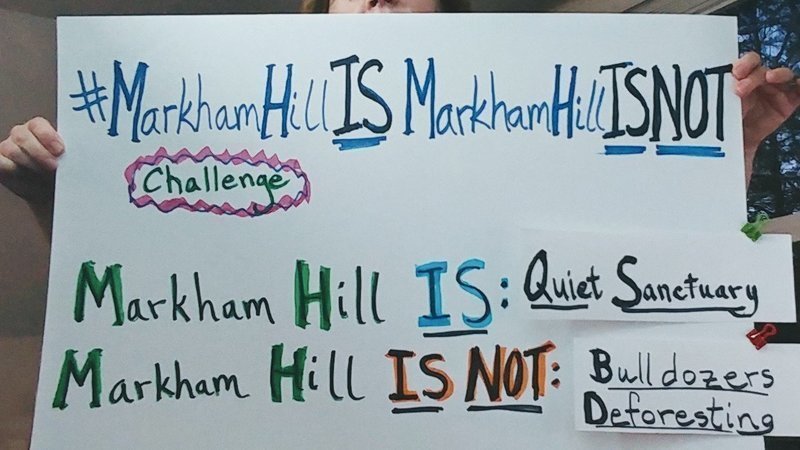 #MarkhamHillIS MarkhamHillISNOT
Challenge
Markham Hill IS: Quiet Sanctuary
Markham Hill IS NOT: Bulldozers
Deforesting